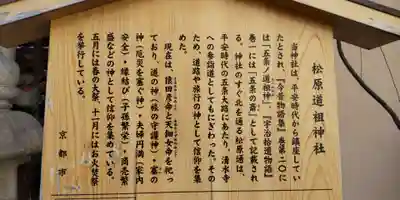 松原道祖神社
当神社は、平安時代から鎮座してい
たとされ、『今昔物語集』巻第二〇に
は「五条ノ道祖神」、『宇治拾遺物語』
巻一には「五条の斎」として記載され
る。神社のすぐ北を通る松原通は、
平安時代の五条大路にあたり、清水寺
への参詣道としてもにぎわった。その
ため、道路や旅行の神として信仰を集
めた。
現在は、猿田彦命と天鈿女命を祀っ
ており、道の神(旅の守護神)・塞の
神(疫災を塞ぐ神)・夫婦円満(家内
安全)・縁結び(子孫繁栄)・商売繁
盛などの神として信仰を集めている。
五月には春の大祭、十一月にはお火焚祭
を挙行している。
京都市